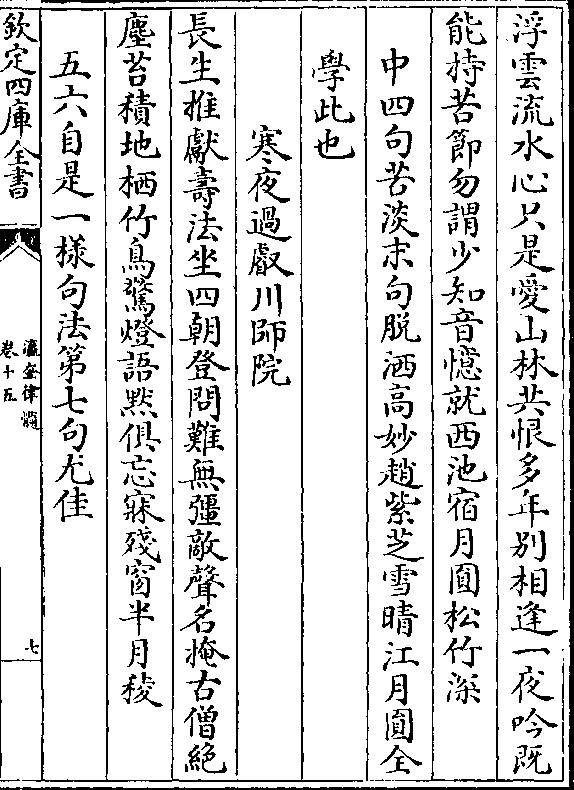 浮雲流水心只是愛山林共恨多年別相逢一夜吟既
能持苦節勿謂少知音憶就西池宿月圓松竹深
中四句苦淡末句脫洒高妙趙紫芝雪晴江月圓全
學此也
寒夜過叡川師院
長生推獻壽法坐四朝登問難無彊敵聲名掩古僧絶
塵苔積地栖竹鳥驚燈語默俱忘寐殘窗半月稜
五六自是一樣句法第七句尤佳
欽定四庫全書
瀛奎律髓
卷十五
七